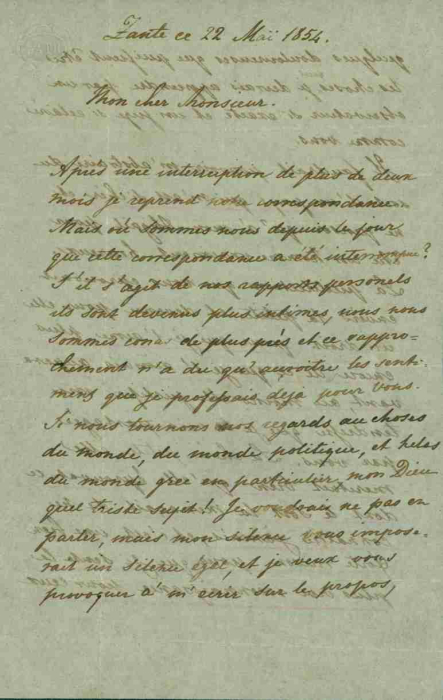 Zante ce 22 Mai 1854.
Mon cher Monsieur.
Après une interruption de plus de deux
mois je reprend notre correspondance
Mais où sommes nous depuis le jour
que cette correspondance a été interrompue?
S'il s'agit de nos rapports personels
ils sont devenus plus intimes, nous nous
sommes de plus près et ce rappro-
chement n'a du qu' les senti-
ments que je professais déja pour vous.
Si nous tournons nos regards au choses
du monde, du monde politique, et helas
du monde grec en particulier, mon Dieu
quel triste sujet! Je voudrais ne pas en
parler, mais mon silence vous impose-
rait un silence égal, et je veux vous
provoquer à m'ecrir sur le propos,